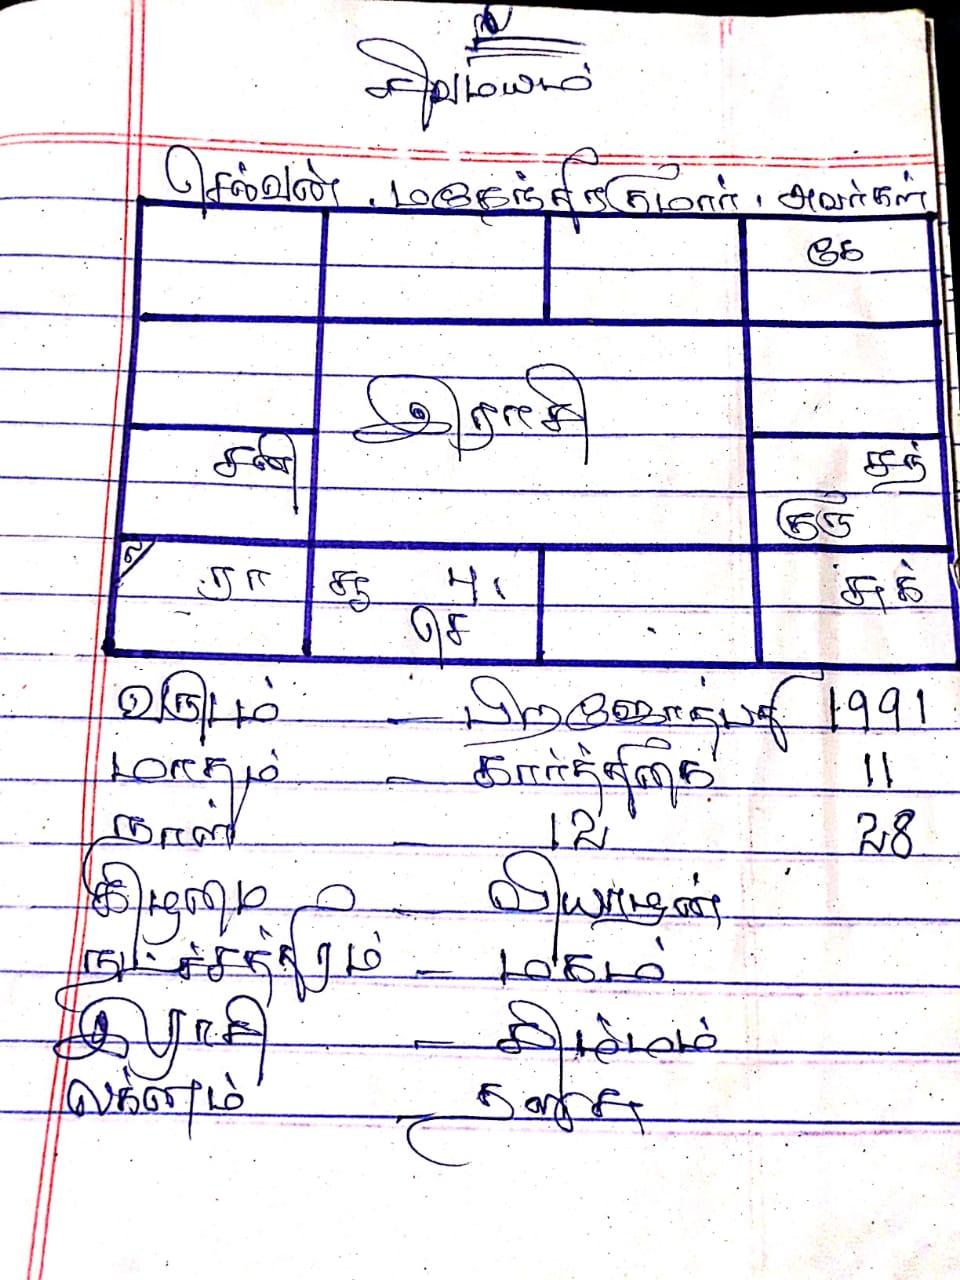 உ
சிவமயம்
செல்வன். மகேந்திரகுமார். அவர்கள்
கே
இராசி
சனி
சந்
குரு
ல
ரா
சூ பு.
செ
சுக்
வருடம் – பிரஜோத்பதி 1991
மாதம் – கார்த்திகை 11
நாள் – 12 28
கிழமை – வியாழன்
நட்சத்திரம் – மகம்
இராசி – சிம்மம்
லக்னம் – தனுசு